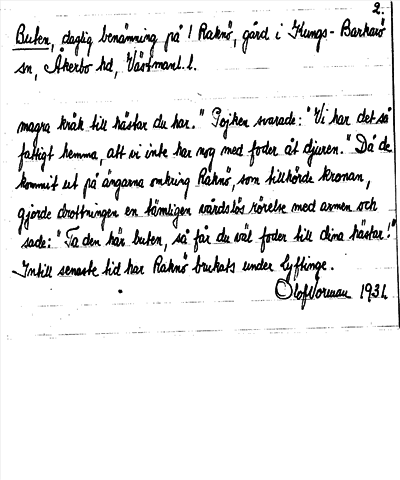 2.
Buten, daglig benämning på ! Raknö, gård i Kungs-Barkarö
sn, Åkerbo hd, Västmanl. l.
magra kråk till hästar du har." Pojken svarade: "Vi har det så
fattigt hemma, att vi inte har nog med foder åt djuren." Då de
kommit ut på ängarna omkring Raknö, som tillhörde kronan,
gjorde drottningen en tämligen vårdslös rörelse med armen och
sade: "Ta den här buten, så får du väl foder till dina hästar!"
Intill senaste tid har Raknö brukats under Lyftinge.
Olof Vorman 1931